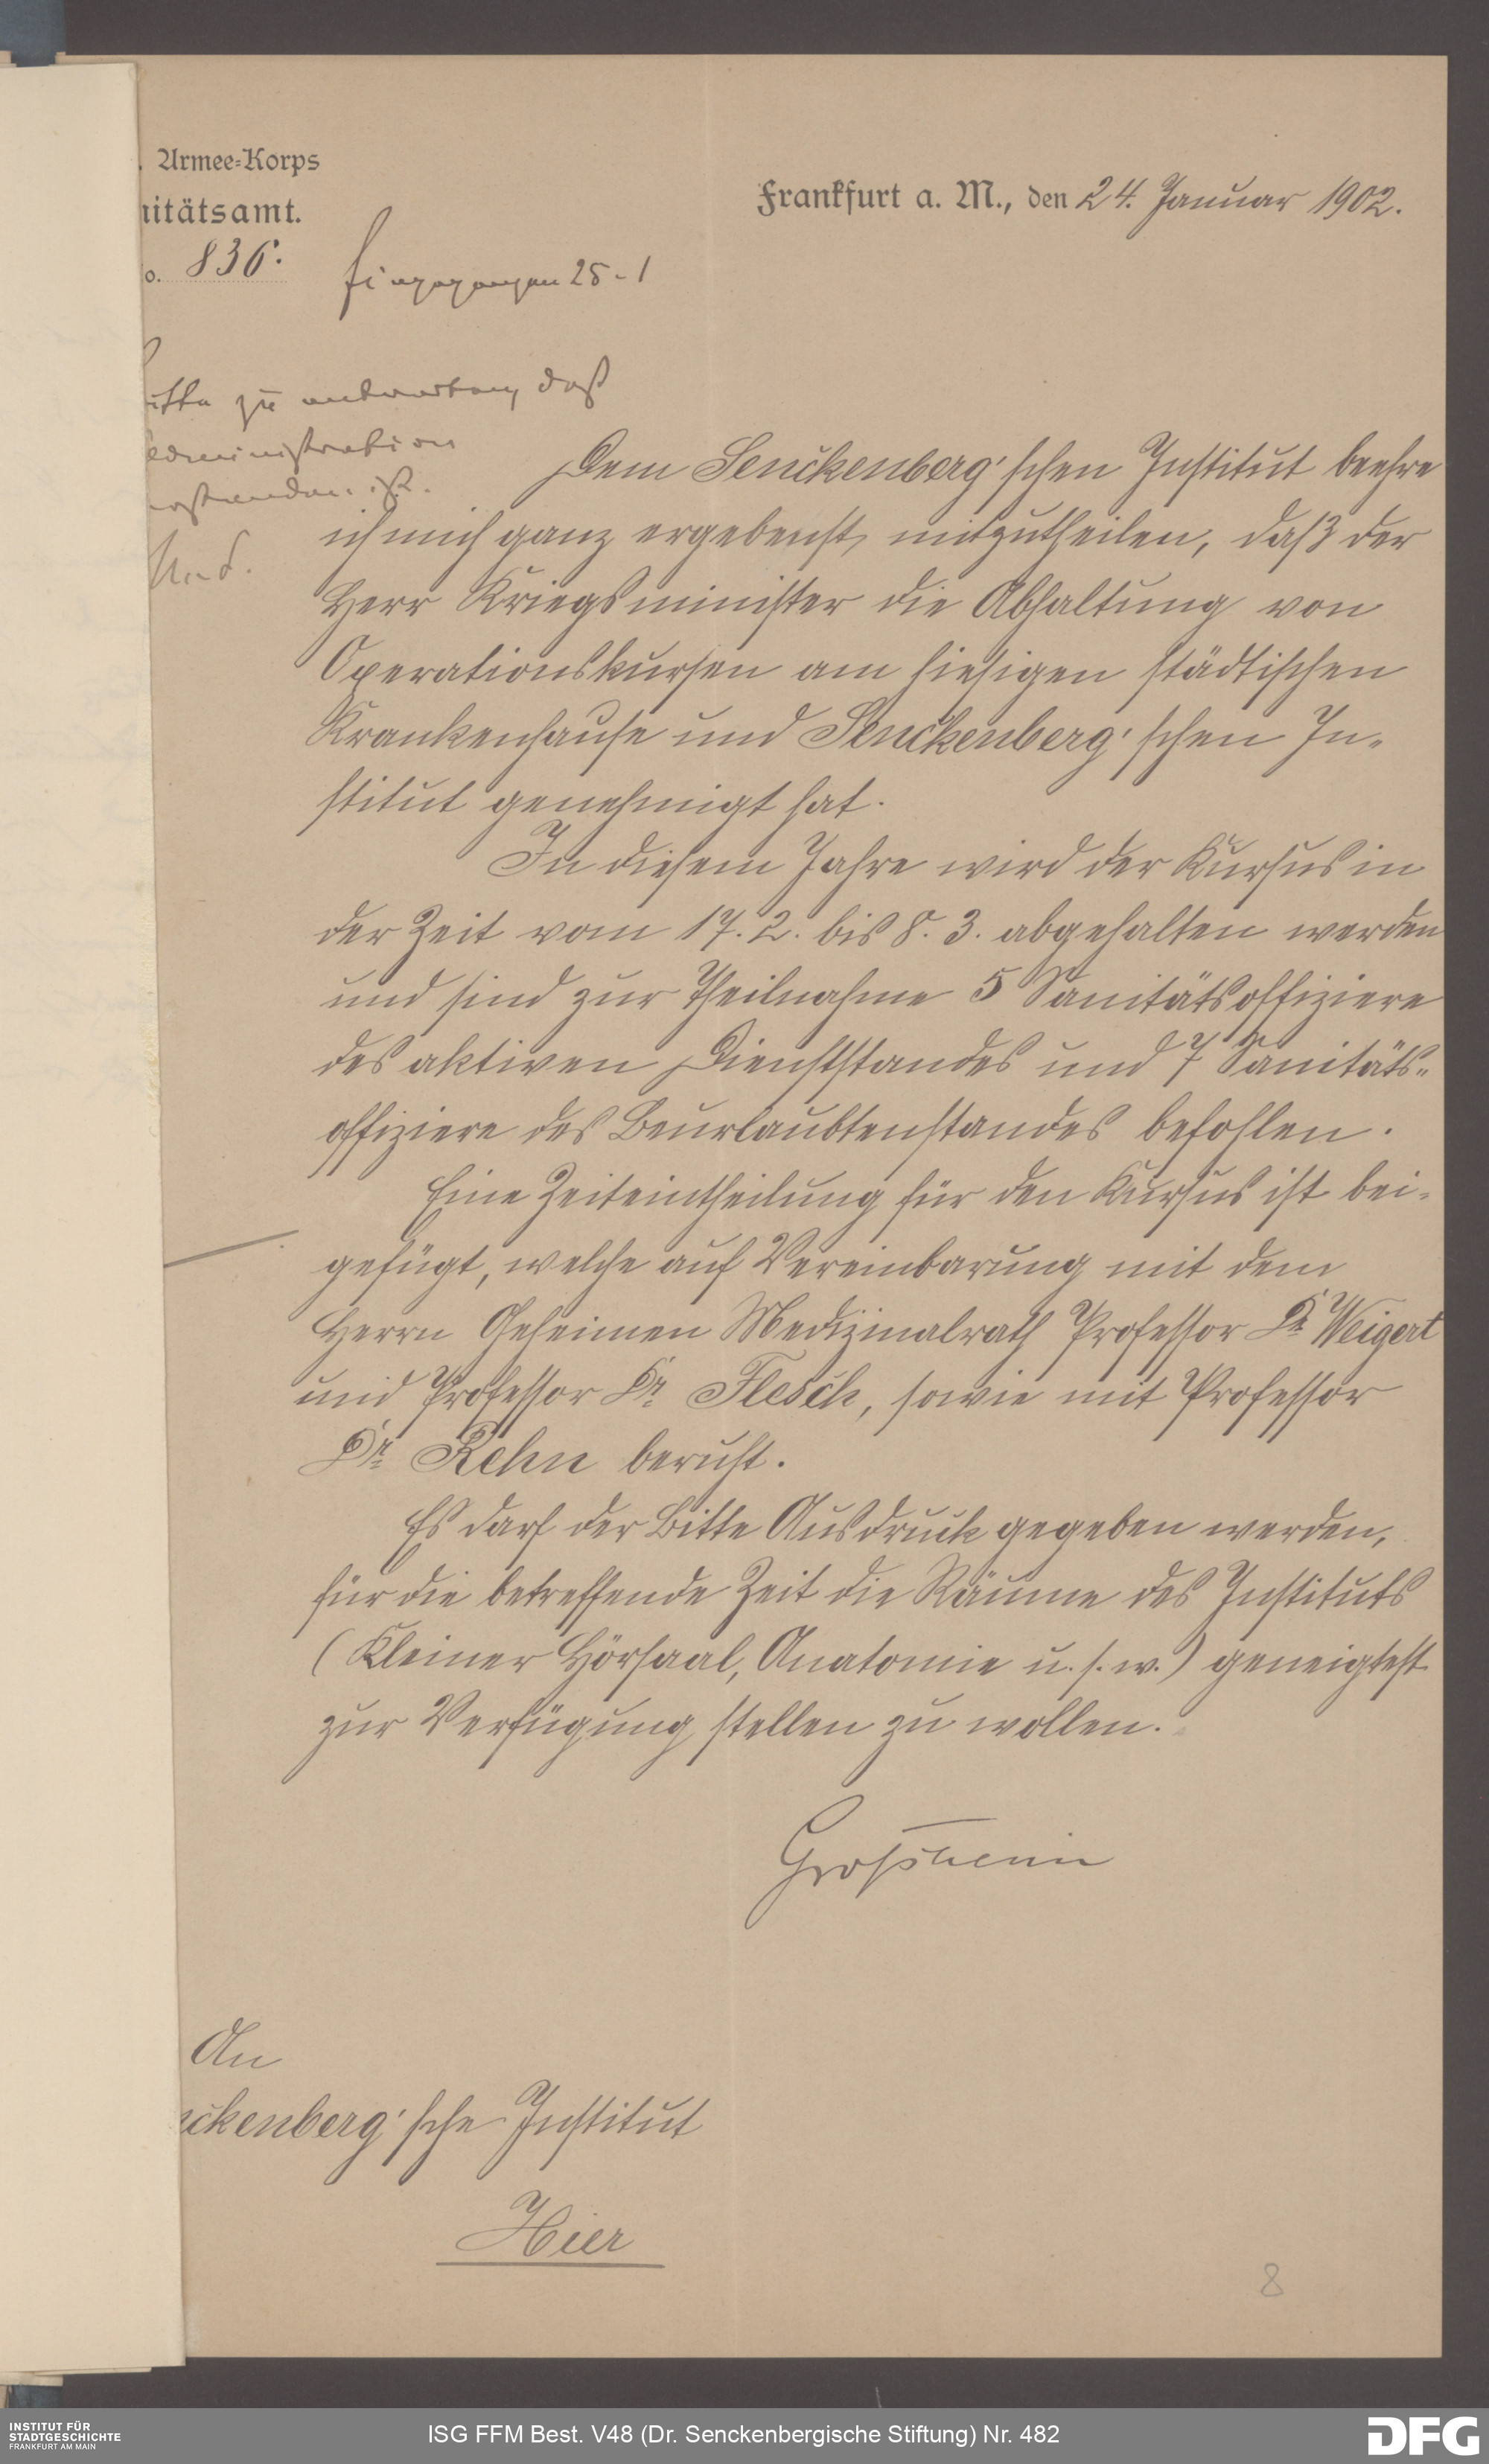 . Armee-Korps
nitätsamt.
o. 836.
Frankfurt a. M., den 24. Januar 1902.
Eingegangen 25-1
bitte zu antworten, daß
Administration
verstanden ist.
Dem Senckenberg'schen Institut beehre
ich mich ganz ergebenst mitzutheilen, daß der
Herr Kriegsminister die Abhaltung von
Operationskursen am hiesigen städtischen
Krankenhause und Senckenberg'schen In-
stitut genehmigt hat.
In diesem Jahre wird der Kursus in
der Zeit vom 17. 2. bis 8. 3. abgehalten werden
und sind zur Theilnahme 5 Sanitätsoffiziere
des aktiven Dienststandes und 7 Sanitäts-
offiziere des Beurlaubtenstandes befohlen.
Eine Zeiteintheilung für den Kursus ist bei-
gefügt, welche auf Vereinbarung mit dem
Herrn Geheimen Medizinalrath Professor Dr. Weigert
und Professor Dr. Flesch, sowie mit Professor
Dr. Rehn beruht.
Es darf der Bitte Ausdruck gegeben werden,
für die betreffende Zeit die Räume des Instituts
(Kleiner Hörsaal, Anatomie u. s. w.) geneigtest
zur Verfügung stellen zu wollen.
Großheim
An
nckenberg'sche Institut
Hier
8
INSTITUT FÜR
STADTGESCHICHTE
FRANKFURT AM MAIN
ISG FFM Best. V48 (Dr. Senckenbergische Stiftung) Nr. 482
DFG